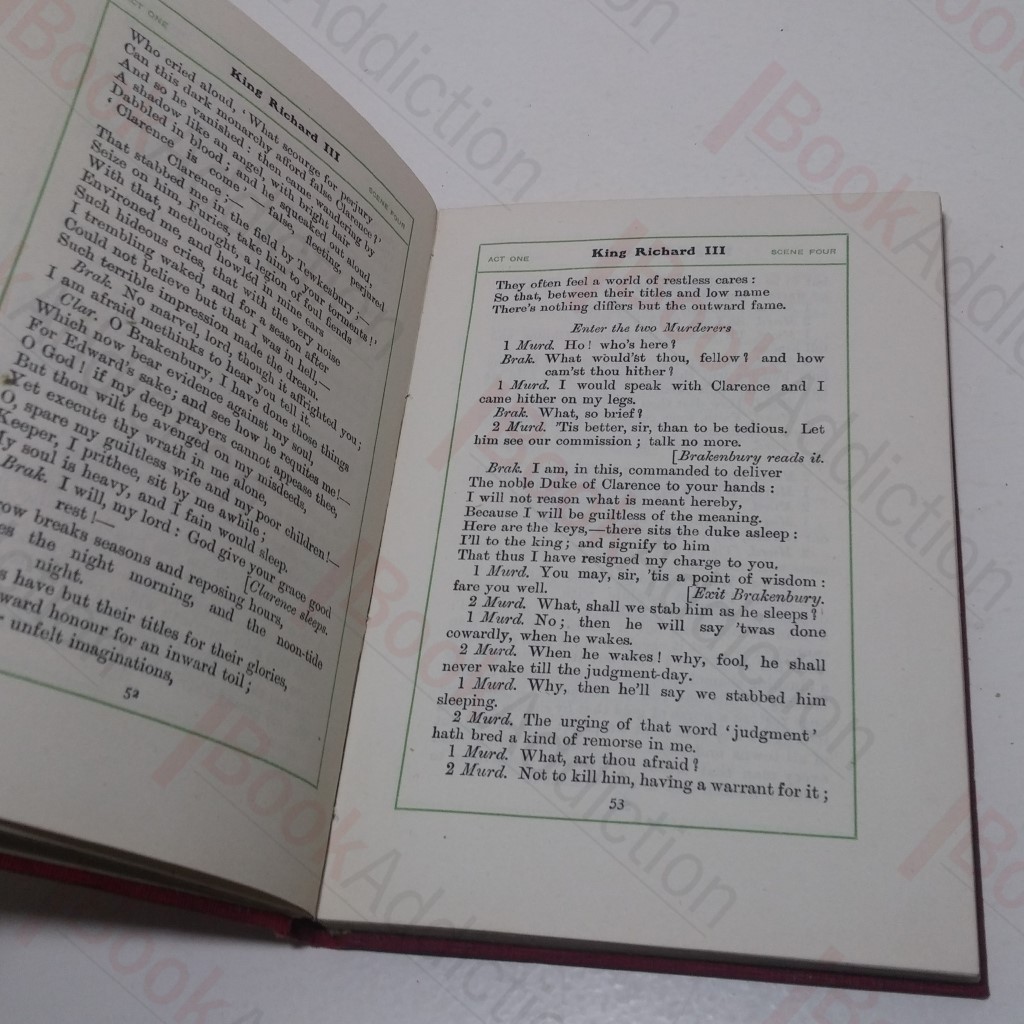 ACT ONE
King Richard III
SCENE FOUR
Who cried aloud, ‘What scourge for perjury
Can this dark monarchy afford false Clarence?’
And so he vanished: then came wandering by
A shadow like an angel, with bright hair
Dabbled in blood; and he squeaked out aloud,
‘Clarence is come,—false, fleeting, perjured
Clarence,—
That stabbed me in the field by Tewkesbury;—
Seize on him, Furies, take him to your torments!’
With that, methought, a legion of foul fiends
Environed me, and howléd in mine ears
Such hideous cries, that with the very noise
I trembling waked, and for a season after
Could not believe but that I was in hell,—
Such terrible impression made the dream.
Brak. No marvel, lord, though it affrighted you;
I am afraid methinks to hear you tell it.
Clar. O Brakenbury, I have done those things
Which now bear evidence against my soul,
For Edward's sake; and see how he requites me!—
O God! if my deep prayers cannot appease thee,
But thou wilt be avenged on my misdeeds,
Yet execute thy wrath in me alone,
O, spare my guiltless wife and my poor children!—
Keeper, I prithee, sit by me awhile;
My soul is heavy, and I fain would sleep.
Brak. I will, my lord: God give your grace good
rest!—
[Clarence sleeps.
row breaks seasons and reposing hours,
es the night morning, and the noon-tide
night.
s have but their titles for their glories,
ward honour for an inward toil;
r unfelt imaginations,
52
ACT ONE
King Richard III
SCENE FOUR
They often feel a world of restless cares:
So that, between their titles and low name
There's nothing differs but the outward fame.
Enter the two Murderers
1 Murd. Ho! who's here?
Brak. What would'st thou, fellow? and how
cam'st thou hither?
1 Murd. I would speak with Clarence and I
came hither on my legs.
Brak. What, so brief?
2 Murd. 'Tis better, sir, than to be tedious. Let
him see our commission; talk no more.
[Brakenbury reads it.
Brak. I am, in this, commanded to deliver
The noble Duke of Clarence to your hands:
I will not reason what is meant hereby,
Because I will be guiltless of the meaning.
Here are the keys,—there sits the duke asleep:
I'll to the king; and signify to him
That thus I have resigned my charge to you.
1 Murd. You may, sir, 'tis a point of wisdom:
fare you well. [Exit Brakenbury.
2 Murd. What, shall we stab him as he sleeps?
1 Murd. No; then he will say 'twas done
cowardly, when he wakes.
2 Murd. When he wakes! why, fool, he shall
never wake till the judgment-day.
1 Murd. Why, then he'll say we stabbed him
sleeping.
2 Murd. The urging of that word ‘judgment’
hath bred a kind of remorse in me.
1 Murd. What, art thou afraid?
2 Murd. Not to kill him, having a warrant for it;
53
BookAddiction